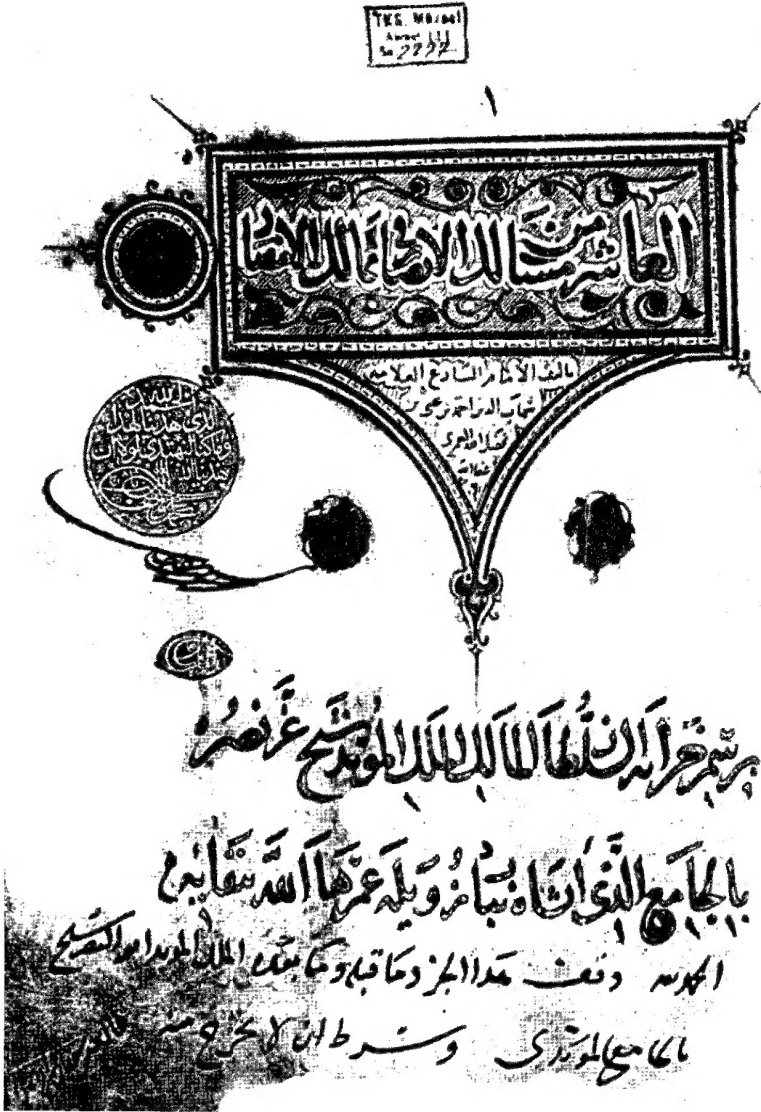 TKS. Müzesi
Ahmet III
No 2797
١
العاشر من مسالك الابصار في ممالك الامصار
تاليف الامام البارع العلامة
شهاب الدين احمد بن يحيى بن
فضل الله العمري
الحمد لله
الذي هدينا لهذا
وما كنا لنهتدي لولا ان
هدينا الله
برسم خزانة السلطان المالك الملك المؤيد شيخ عز نصره
بالجامع الذي انشاه بباب زويلة عمرها الله ببقائه
الحمد لله وقف هذا الجزء وما قبله وما بعده الملك المؤيد ابو النصر شيخ
بالجامع المؤيدي وشرط ان لا يخرج منه